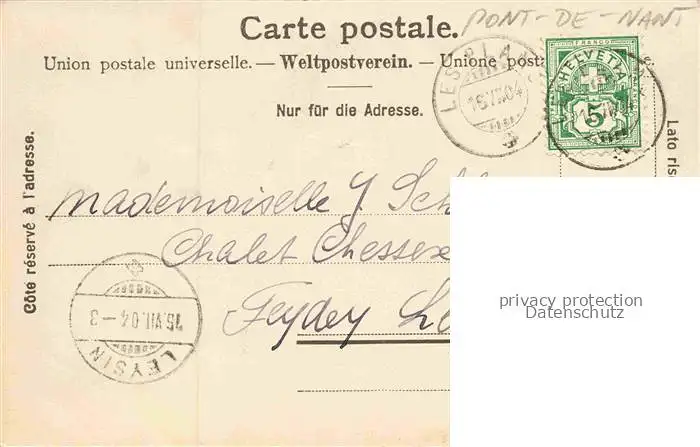 PONT-DE-NANT
Carte postale.
Union postale universelle. — Weltpostverein. — Unione posta
Nur für die Adresse.
Côte réservé à l'adresse.
Lato ris
LES PLAN
FRANCO
HELVETIA
5
Mademoiselle J. Sch
Chalet Chessex
Feydey Le
15.VII.04-3
LEYSIN
privacy protection
Datenschutz